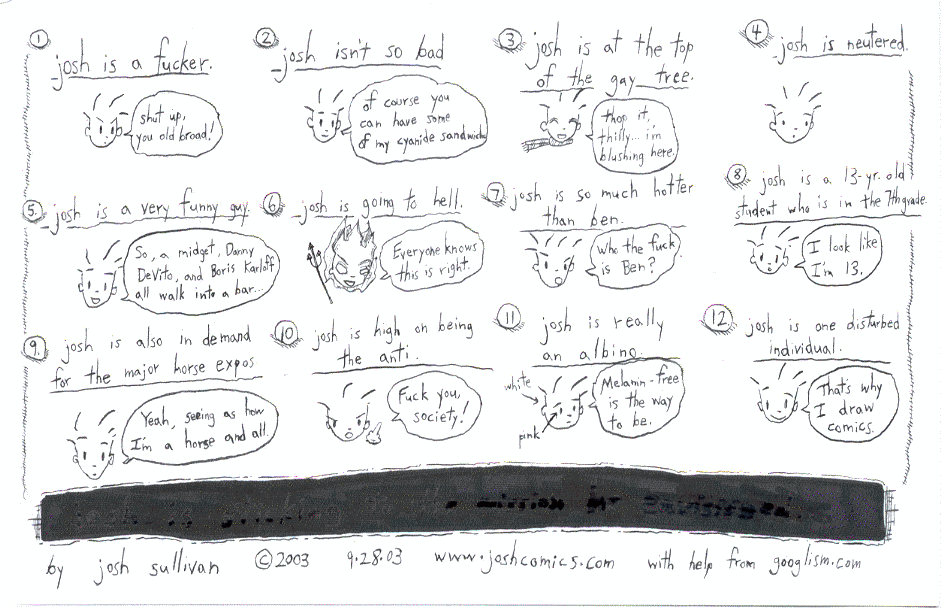 1
josh is a fucker.
shut up,
you old broad!
2
josh isn't so bad
of course you
can have some
of my cyanide sandwich
3
josh is at the top
of the gay tree.
thop it,
thilly... i'm
blushing here.
4
josh is neutered.
5.
josh is a very funny guy.
So, a midget, Danny
DeVito, and Boris Karloff
all walk into a bar...
6
josh is going to hell.
Everyone knows
this is right.
7
josh is so much hotter
than ben.
Who the fuck
is Ben?
8
josh is a 13-yr. old
student who is in the 7th grade
I look like
I'm 13.
9.
josh is also in demand
for the major horse expos
Yeah, seeing as how
I'm a horse and all.
10
josh is high on being
the anti.
Fuck you,
society!
11
josh is really
an albino.
white
pink
Melanin-free
is the way
to be.
12
josh is one disturbed
individual.
That's why
I draw
comics.
by josh sullivan ©2003 9.28.03 www.joshcomics.com with help from googlism.com